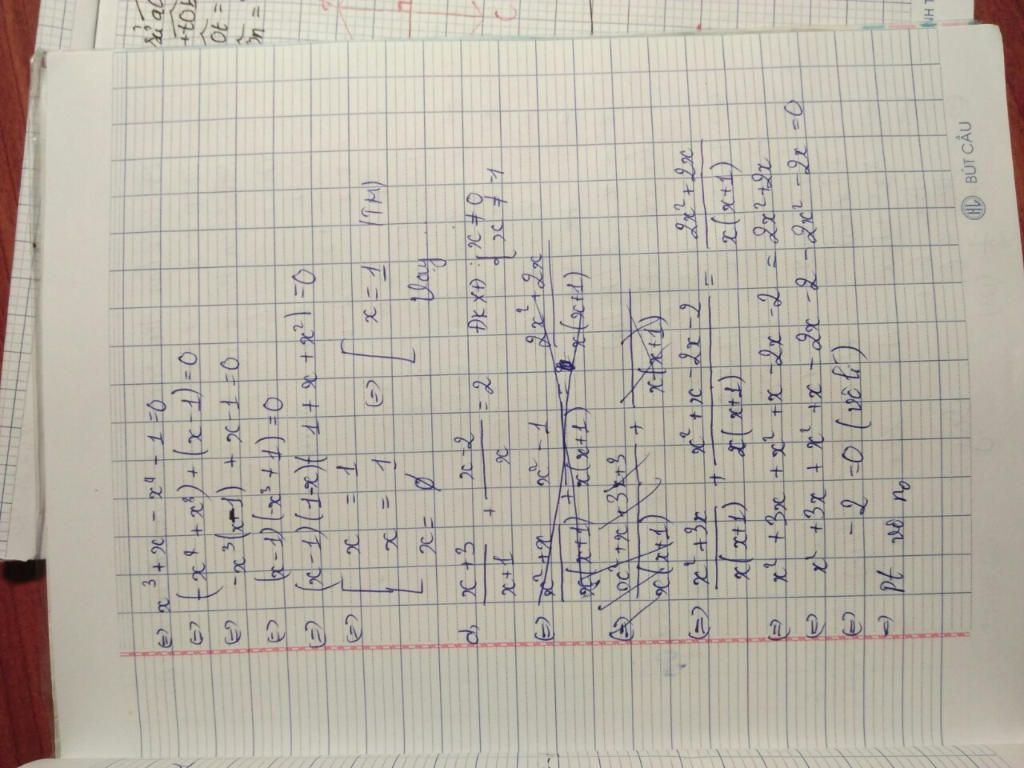 (=) x³ + x - x⁴ - 1 = 0
(=) (-x⁴ + x³) + (x - 1) = 0
(=) -x³(x-1) + x - 1 = 0
(=) (x-1)(-x³+1) = 0
(=) (x-1)(1-x)(1 + x + x²) = 0
(=) [ x = 1 (=) [ x = 1 (TM)
x = 1 Vậy
x = ∅
d, x+3/x+1 + x-2/x = 2 ĐKXĐ: { x ≠ 0
x ≠ -1
(=) x²+x/x(x+1) + x²-1/x(x+1) = 2x²+2x/x(x+1)
(=) x²+x+3x+3/x(x+1) + /x(x+1)
(=) x²+3x/x(x+1) + x²+x-2x-2/x(x+1) = 2x²+2x/x(x+1)
(=) x² + 3x + x² + x - 2x - 2 = 2x² + 2x
(=) x² + 3x + x² + x - 2x - 2 - 2x² - 2x = 0
(=) -2 = 0 (vô lí)
=) Pt vô n₀
BÚT CÂU